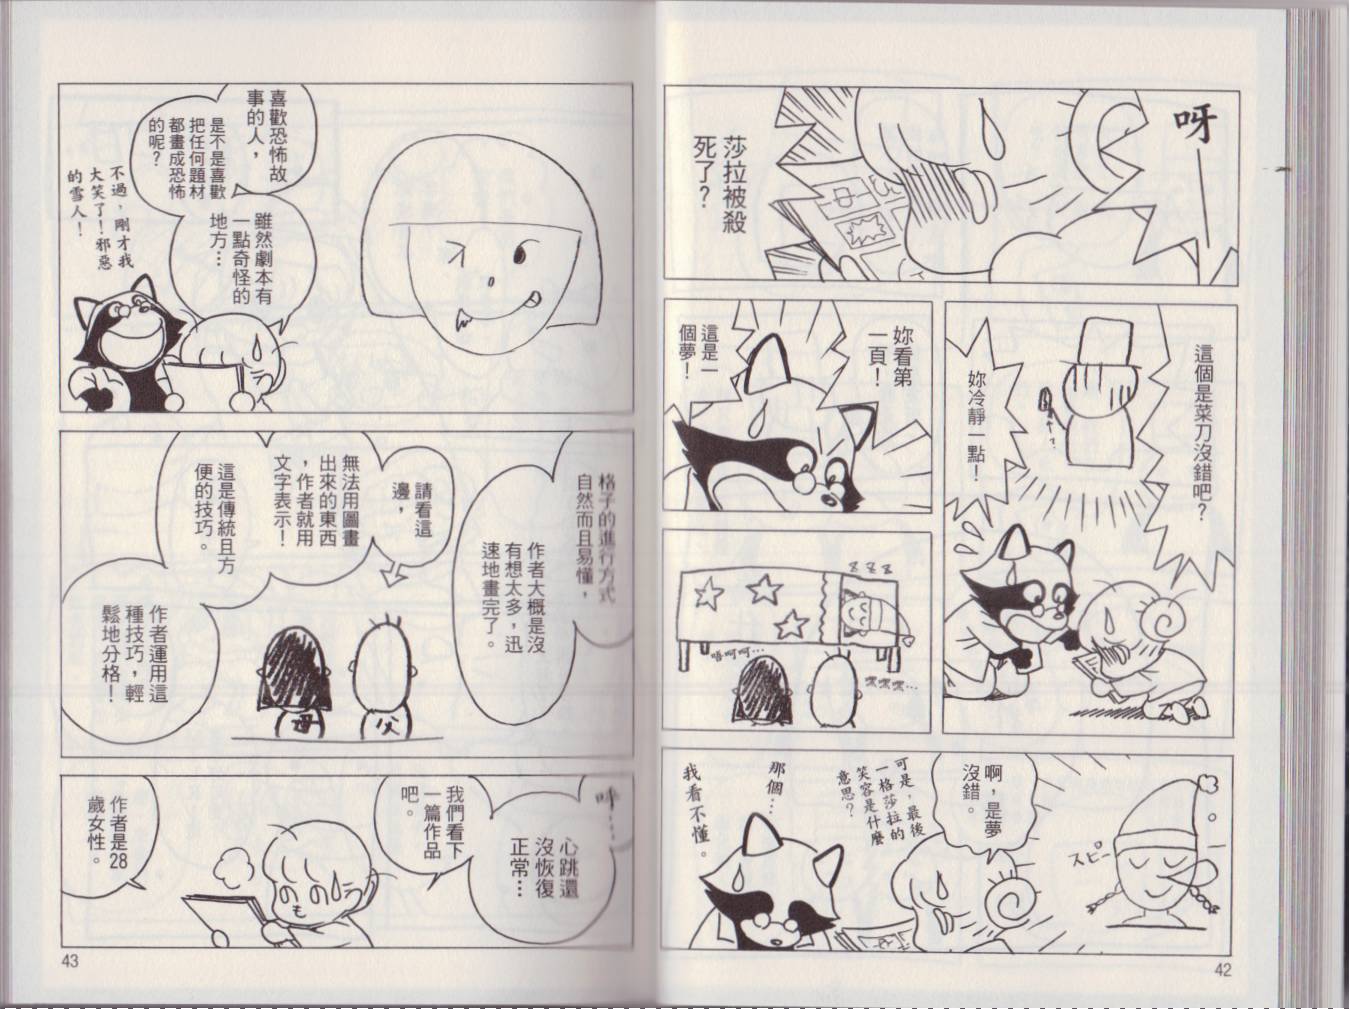 呀
莎拉被殺
死了？
這個是菜刀沒錯吧？
妳冷靜一點！
？
妳看第
一頁！
這是一
個夢！
zzz
唔呵呵…
嘿嘿嘿…
スピー
啊，是夢
沒錯。
可是，最後
一格莎拉的
笑容是什麼
意思？
那個…
我看不懂。
42
喜歡恐怖故
事的人，
是不是喜歡
把任何題材
都畫成恐怖
的呢？
雖然劇本有
一點奇怪的
地方…
不過，剛才我
大笑了！邪惡
的雪人！
格子的進行方式
自然而且易懂，
作者大概是沒
有想太多，迅
速地畫完了。
請看這
邊，
無法用圖畫
出來的東西
，作者就用
文字表示！
這是傳統且方
便的技巧。
父
母
作者運用這
種技巧，輕
鬆地分格！
呼…
心跳還
沒恢復
正常…
我們看下
一篇作品
吧。
作者是28
歲女性。
43